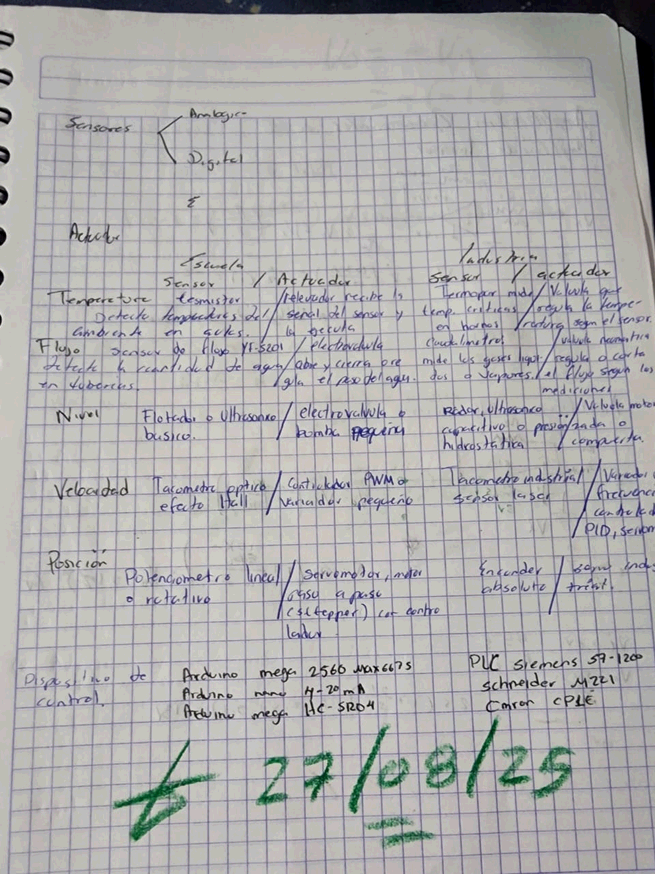 Sensores
Analogic
Digital
Σ
Actuador
Escuela
Industria
Sensor / Actuador
Sensor / actuador
Temperatura termistor / relevador recibe la
Detecta temperatura del / señal del sensor y
ambiente en aulas. / la ejecuta
Termopar mide / Valvula que
temp. criticas / regula la tempe-
en hornos / ratura segun el sensor.
Flujo Sensor de flujo YF-S201 / electrovalvula
detecta la cantidad de agua / abre y cierra o re
en tuberias. / gla el paso del agua.
Caudalimetros / valvula neumatica
mide los gases liqui / regula o corta
dos o vapores. / el flujo segun las
mediciones
Nivel Flotador o Ultrasonico / electrovalvula o
basico. / bomba pequeña
Radar, Ultrasonico / Valvula motor
capacitivo o presurizada o
hidrostática / compuerta.
Velocidad Tacometro optico / Controlador PWM o
efecto Hall / variador pequeño
Tacometro industrial / Variador
sensor laser / frecuenci
controlad
PID, servom
Posición
Potenciometro lineal / Servomotor, motor
o rotativo / paso a paso
(stepper) con contro
lador
Encoder / servo indus
absoluto / trial.
Dispositivo de
control.
Arduino mega 2560 MAX6675
Arduino nano 4-20 mA
Arduino mega HC-SR04
PLC Siemens S7-1200
Schneider M221
Omron CP1E
27/08/25